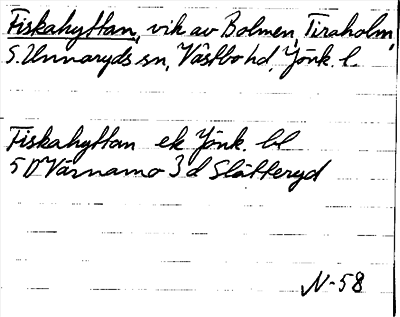 Fiskahyttan, vik av Bolmen, Tiraholm,
S. Unnaryds sn, Västbo hd, Jönk. l.
Fiskahyttan ek Jönk. bl
5 D Värnamo 3 d Slätteryd
N-58